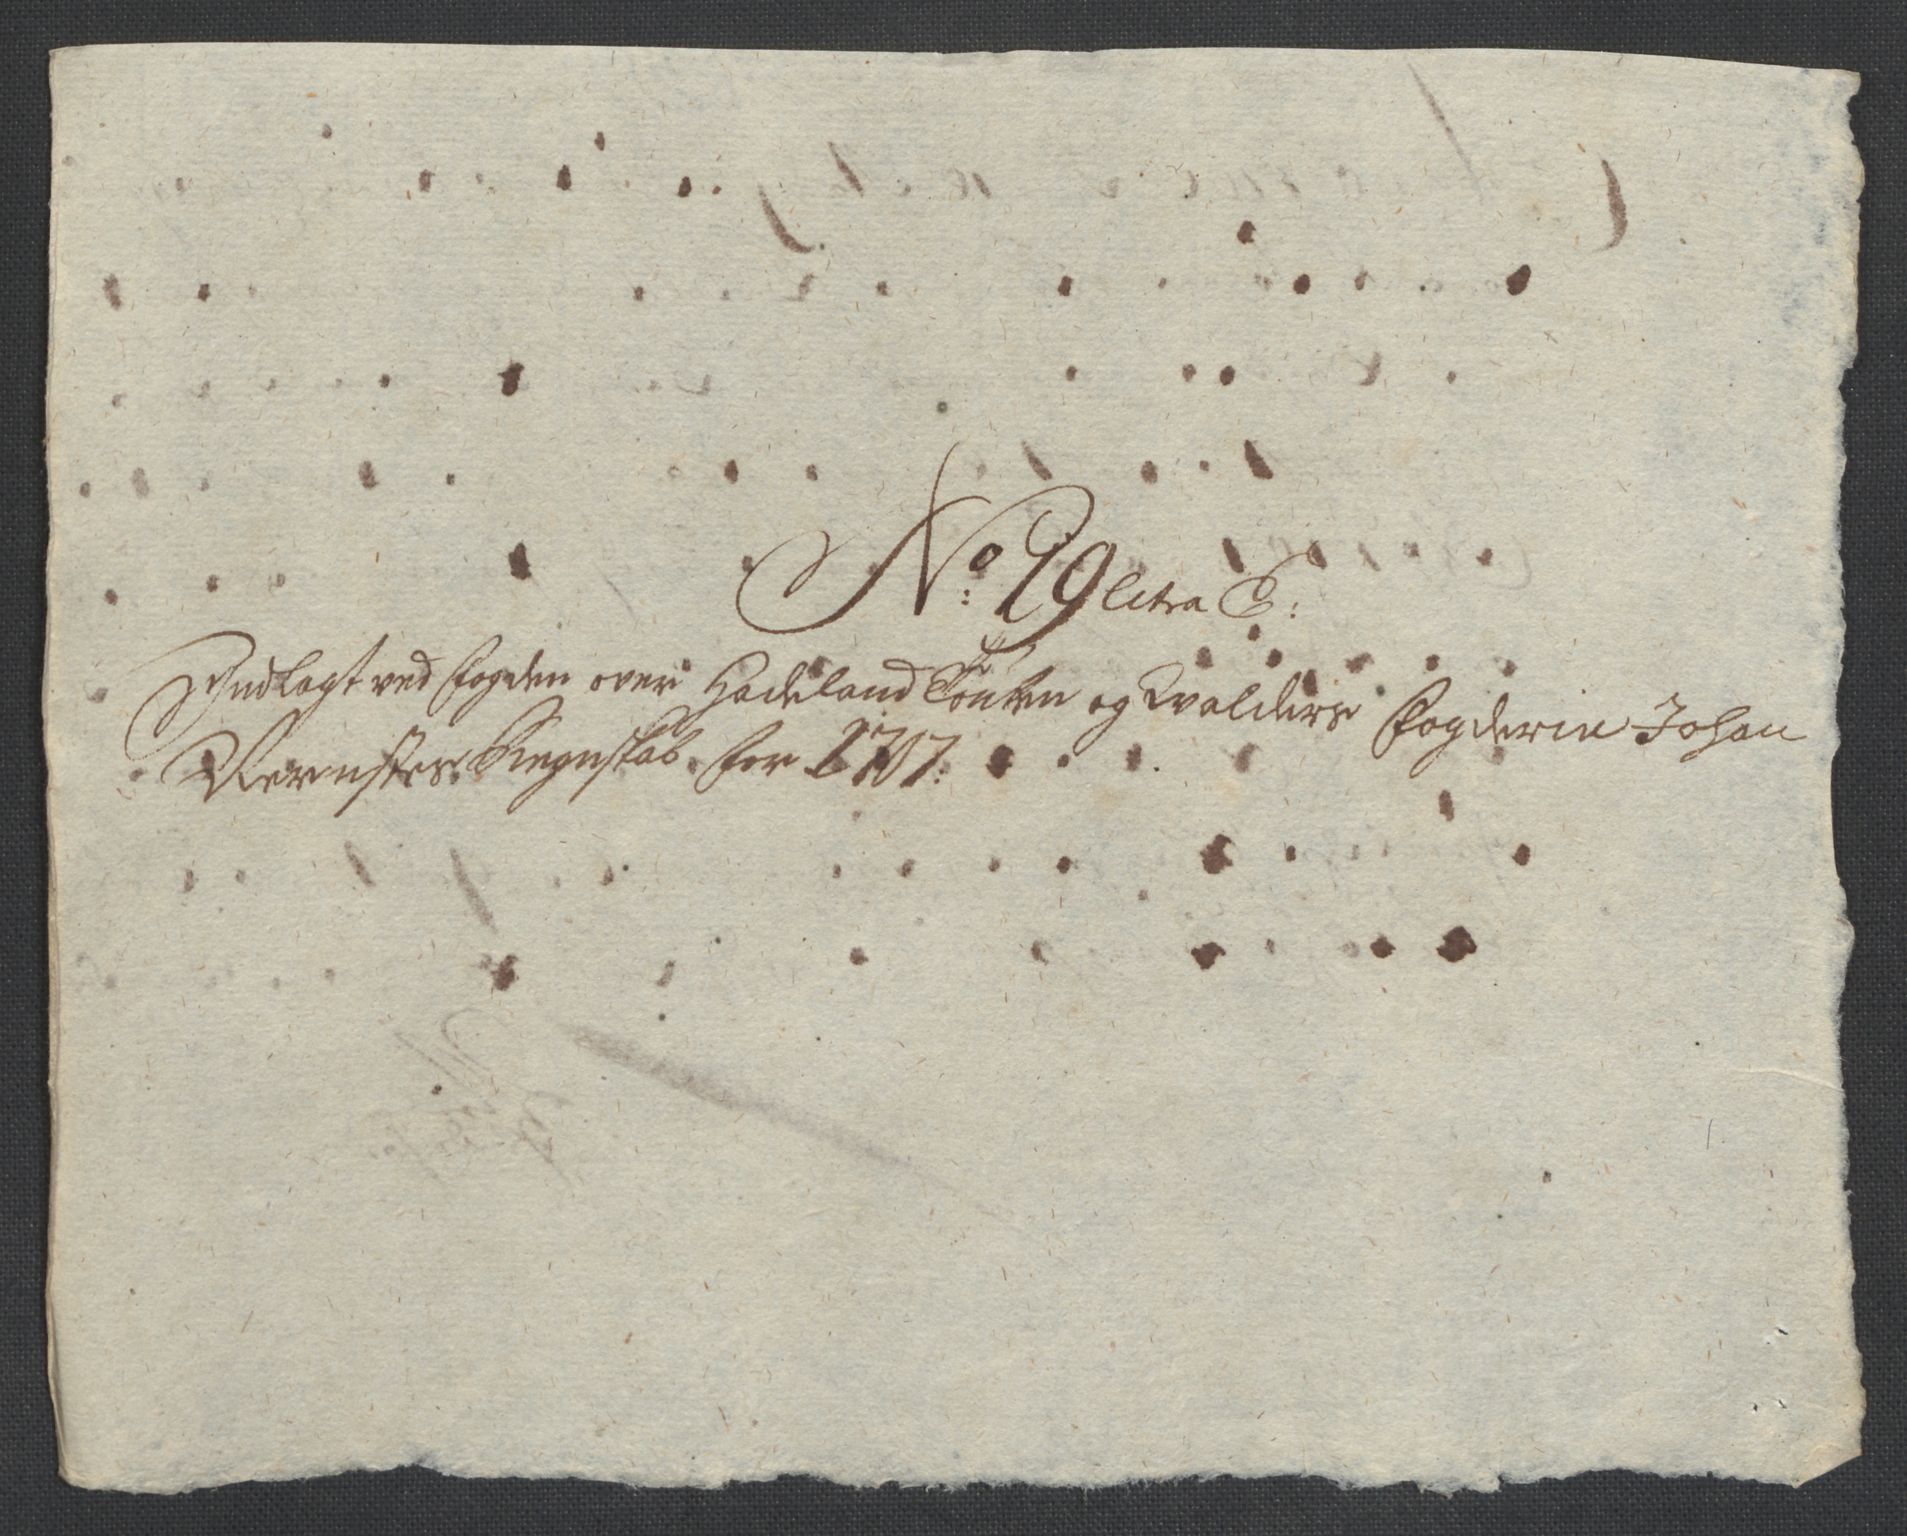 No: 19 litra E:
Indlagt ved fogden over Hadeland Toten og Walders fogderie Johan
Rernstes Regnskab for 1707: